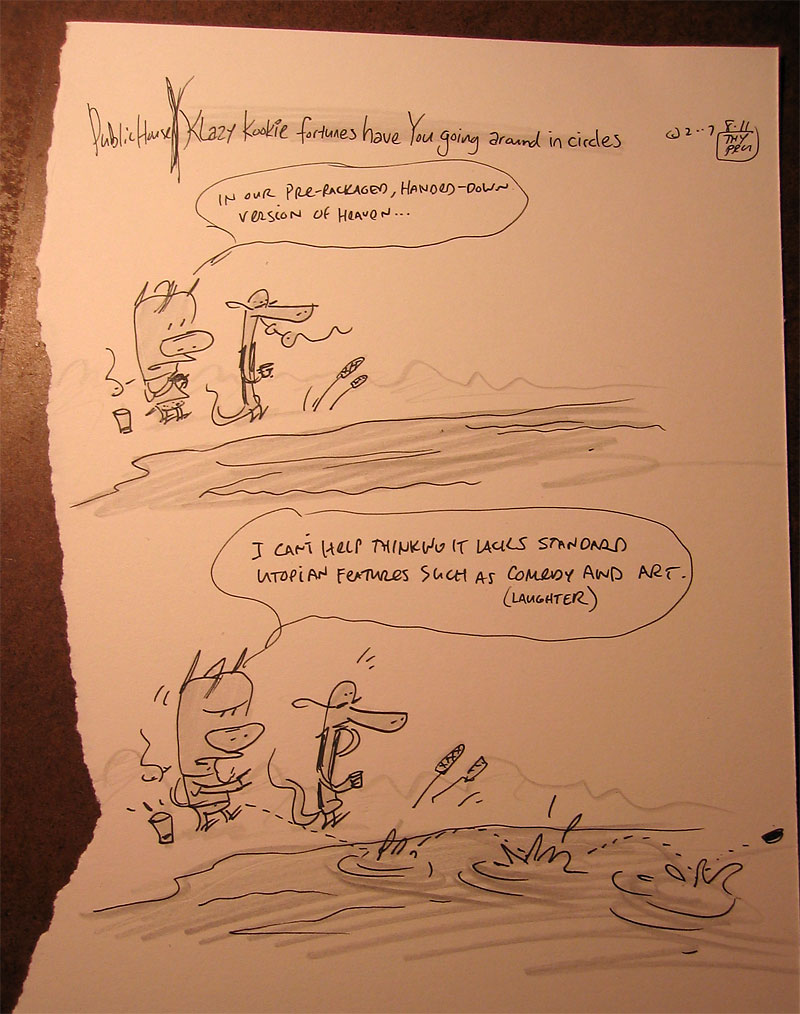 Public House Klazy Kookie fortunes have You going around in circles
8-11
IN OUR PRE-PACKAGED, HANDED-DOWN
VERSION OF HEAVEN...
I CAN'T HELP THINKING IT LACKS STANDARD
UTOPIAN FEATURES SUCH AS COMEDY AND ART.
(LAUGHTER)